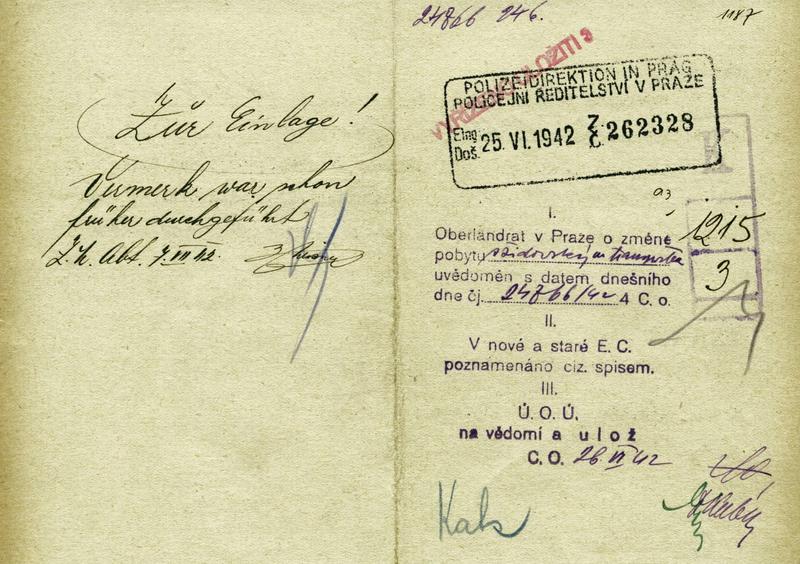 Zur Einlage!
Vermerk war schon
früher durchgeführt
Abt. 7. VII 42.
24766 246.
1187
VYŘIZENO ULOŽITI
POLIZEIDIREKTION IN PRAG
POLICEJNÍ ŘEDITELSTVÍ V PRAZE
Eing.
Doš. 25. VI. 1942 Z. Č. 262328
I.
Oberlandrat v Praze o změně
pobytu židovským transportem
uvědoměn s datem dnešního
dne čj. 24766/42 4 C. o.
II.
V nové a staré E. C.
poznamenáno ciz. spisem.
III.
Ú. O. Ú.
na vědomí a ulož
C. O. 26 VI 42
K
1215
3
Kak